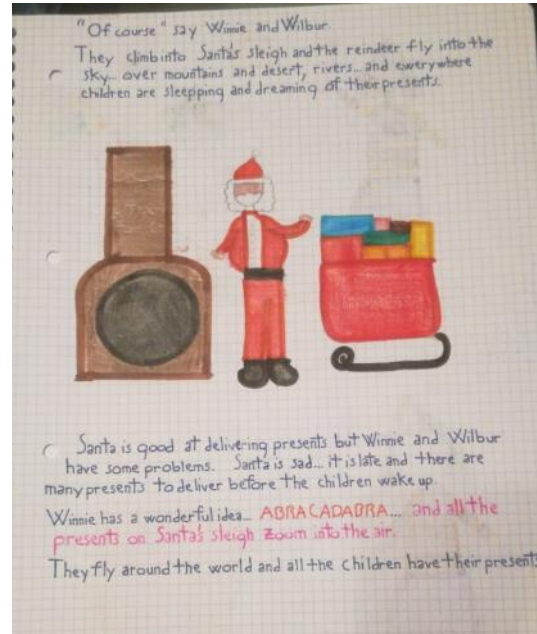 "Of course" say Winnie and Wilbur.
They climb into Santa's sleigh and the reindeer fly into the
sky... over mountains and desert, rivers... and ewerywhere
children are sleepping and dreaming of their presents.
Santa is good at delivering presents but Winnie and Wilbur
have some problems. Santa is sad... it is late and there are
many presents to deliver before the children wake up.
Winnie has a wonderful idea... ABRACADABRA... and all the
presents on Santa's sleigh zoom into the air.
They fly around the world and all the children have their present